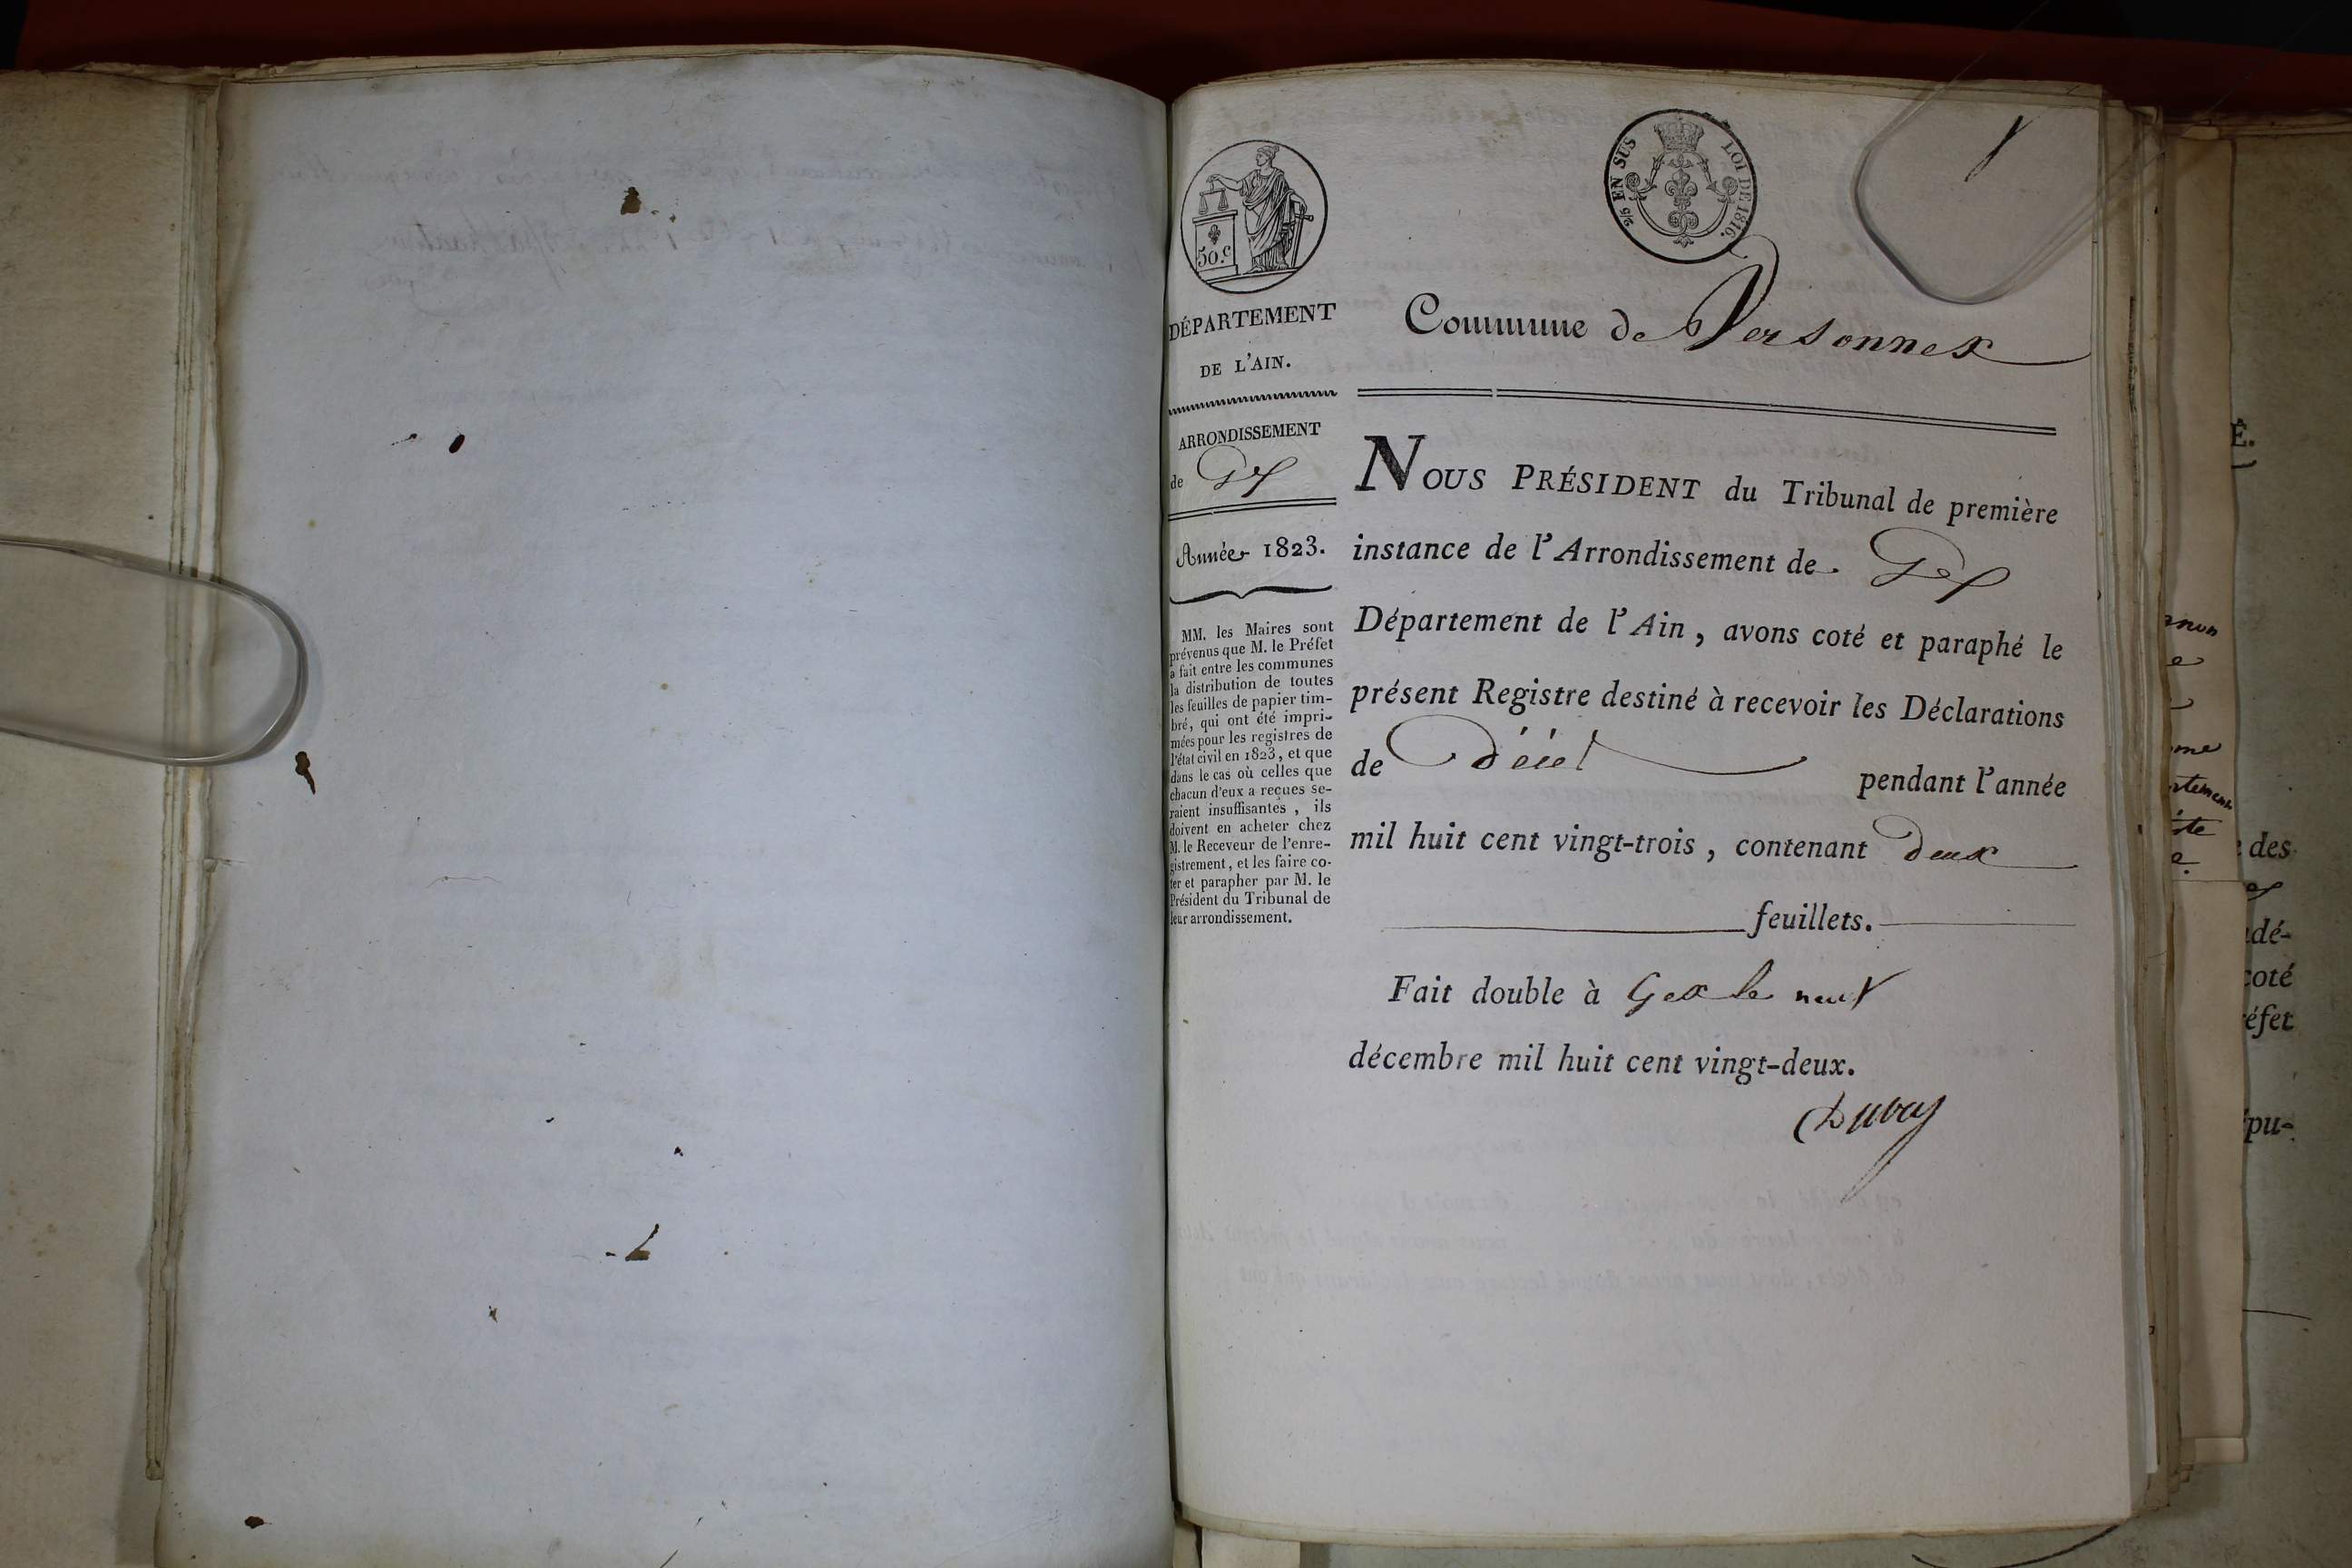 50.c
2/5 EN SUS LOI DE 1816.
DÉPARTEMENT
DE L'AIN.
ARRONDISSEMENT
de Gex
Année 1823.
MM. les Maires sont
prévenus que M. le Préfet
a fait entre les communes
la distribution de toutes
les feuilles de papier tim-
bré, qui ont été impri-
mées pour les registres de
l'état civil en 1823, et que
dans le cas où celles que
chacun d'eux a reçues se-
raient insuffisantes, ils
doivent en acheter chez
M. le Receveur de l'enre-
gistrement, et les faire co-
ter et parapher par M. le
Président du Tribunal de
leur arrondissement.
Commune de Versonnex
NOUS PRÉSIDENT du Tribunal de première
instance de l'Arrondissement de Gex
Département de l'Ain, avons coté et paraphé le
présent Registre destiné à recevoir les Déclarations
de décès pendant l'année
mil huit cent vingt-trois, contenant deux
feuillets.
Fait double à Gex le neuf
décembre mil huit cent vingt-deux.
des
dé-
coté
éfet
pu-